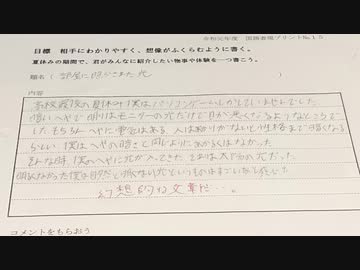 令和元年度 国語表現プリントNo.15
目標 相手にわかりやすく、想像がふくらむように書く。
夏休みの期間で、君がみんなに紹介したい物事や体験を一つ書こう。
題名( 部屋に閉ざされた光 )
内容
高校最後の夏休み僕はパソコンゲームしかしていませんでした
暗いへやで明りはモニターの光だけで目が悪くなるようなところで
した もちろんへやに電気はある 人は明りがないと性格まで暗くなる
らしい 僕はへやの暗さと同じように
そんな時 僕のへやに光が入ってきた それは太陽の光だった
幻想的な文章だ…。
コメントをもらおう